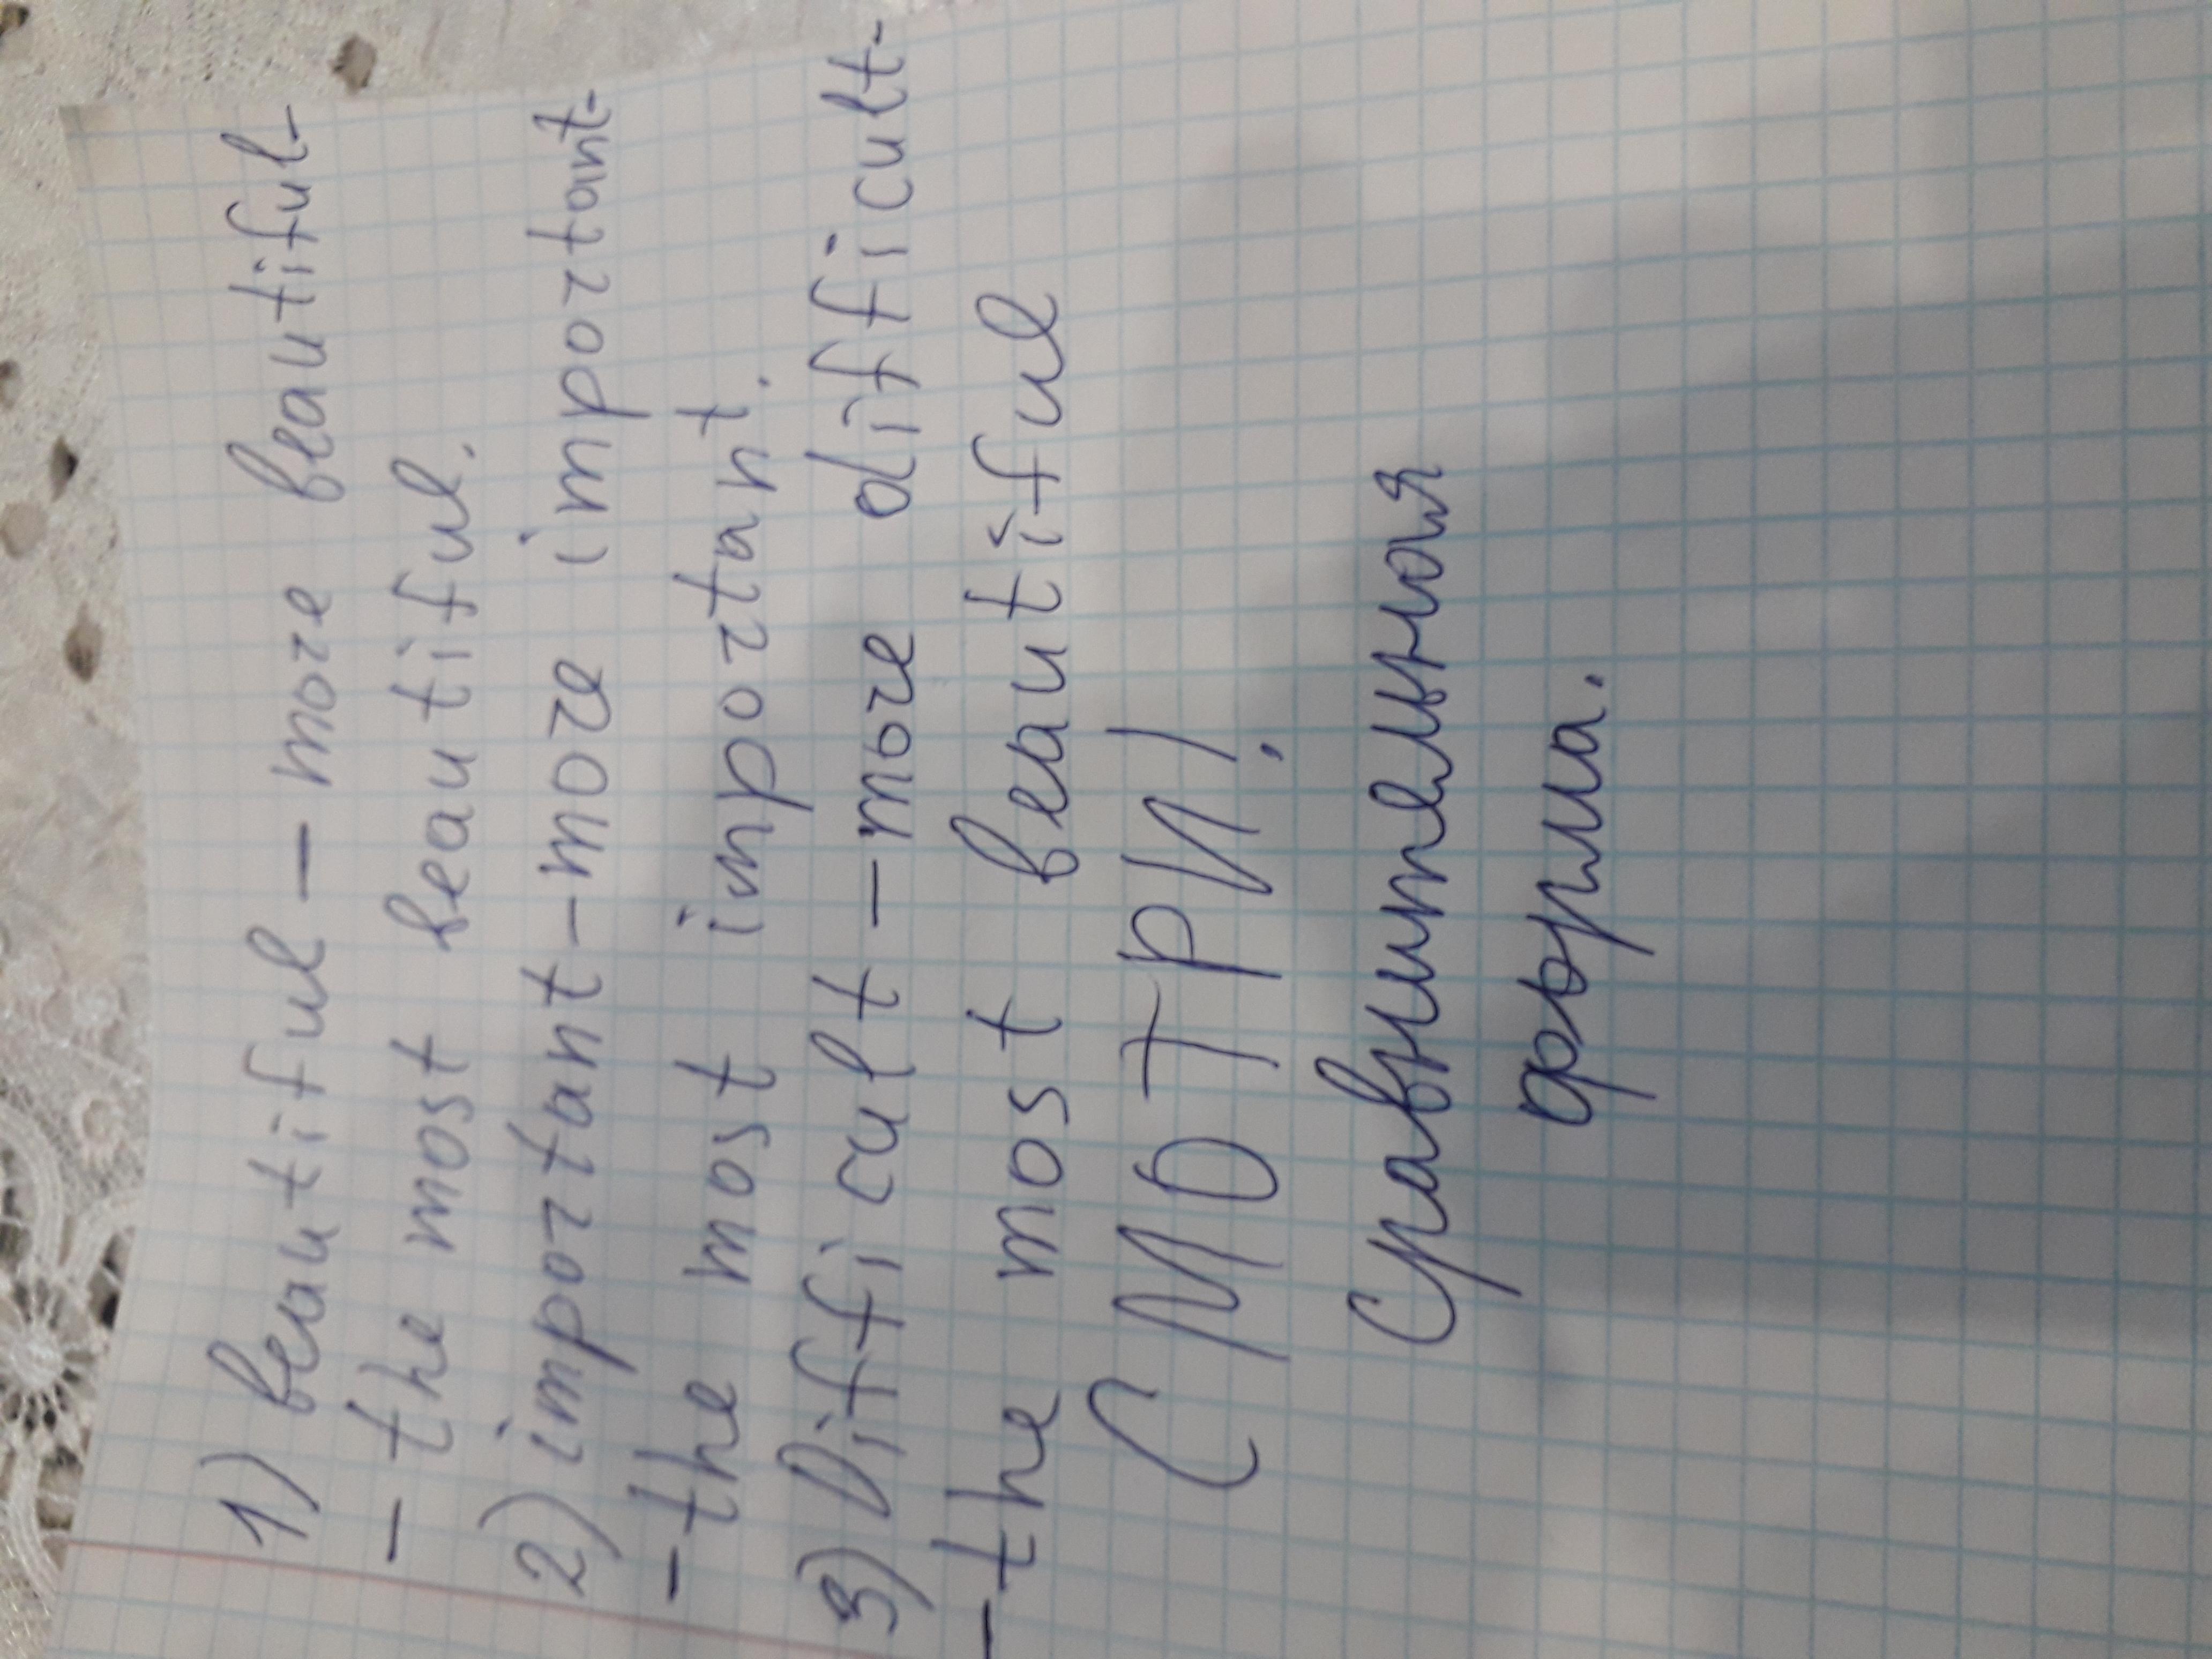 1) beautiful – more beautiful-
- the most beautiful.
2) important - more important-
- the most important.
3) Difficult - more difficult-
- the most beautiful
СМОТРИ!
Сравнительная
форма.